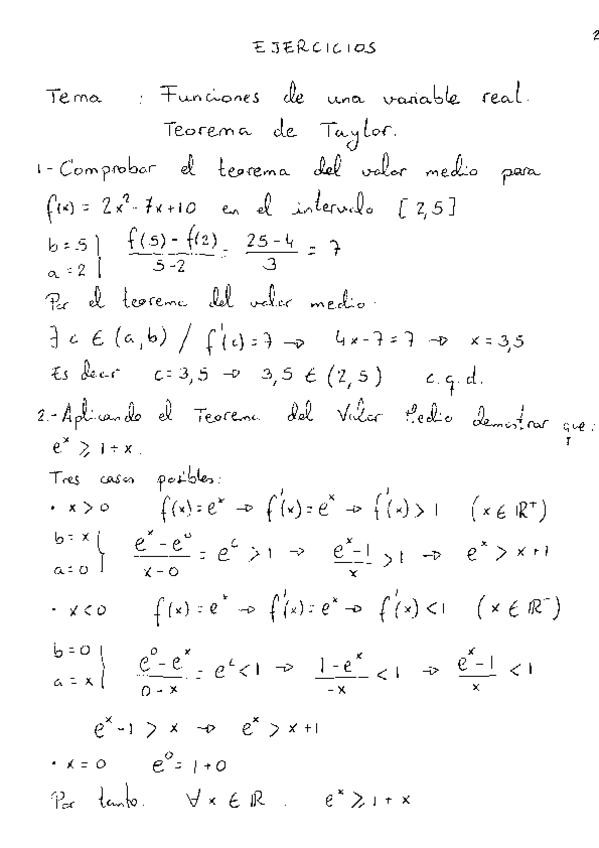 2
EJERCICIOS
Tema : Funciones de una variable real.
Teorema de Taylor.
1.- Comprobar el teorema del valor medio para
f(x) = 2x² - 7x + 10 en el intervalo [2,5]
b = 5
a = 2 } f(5) - f(2) / 5 - 2 = 25 - 4 / 3 = 7
Por el teorema del valor medio.
∃ c ∈ (a,b) / f'(c) = 7 → 4x - 7 = 7 → x = 3,5
Es decir c = 3,5 → 3,5 ∈ (2,5) c.q.d.
2.- Aplicando el Teorema del Valor Medio demostrar que:
eˣ ⩾ 1 + x.
Tres casos posibles:
· x > 0 f(x) = eˣ → f'(x) = eˣ → f'(x) > 1 (x ∈ ℝ⁺)
b = x
a = 0 } eˣ - e⁰ / x - 0 = eᶜ > 1 → eˣ - 1 / x > 1 → eˣ > x + 1
· x < 0 f(x) = eˣ → f'(x) = eˣ → f'(x) < 1 (x ∈ ℝ⁻)
b = 0
a = x } e⁰ - eˣ / 0 - x = eᶜ < 1 → 1 - eˣ / -x < 1 → eˣ - 1 / x < 1
eˣ - 1 > x → eˣ > x + 1
· x = 0 e⁰ = 1 + 0
Por tanto. ∀ x ∈ ℝ . eˣ ⩾ 1 + x